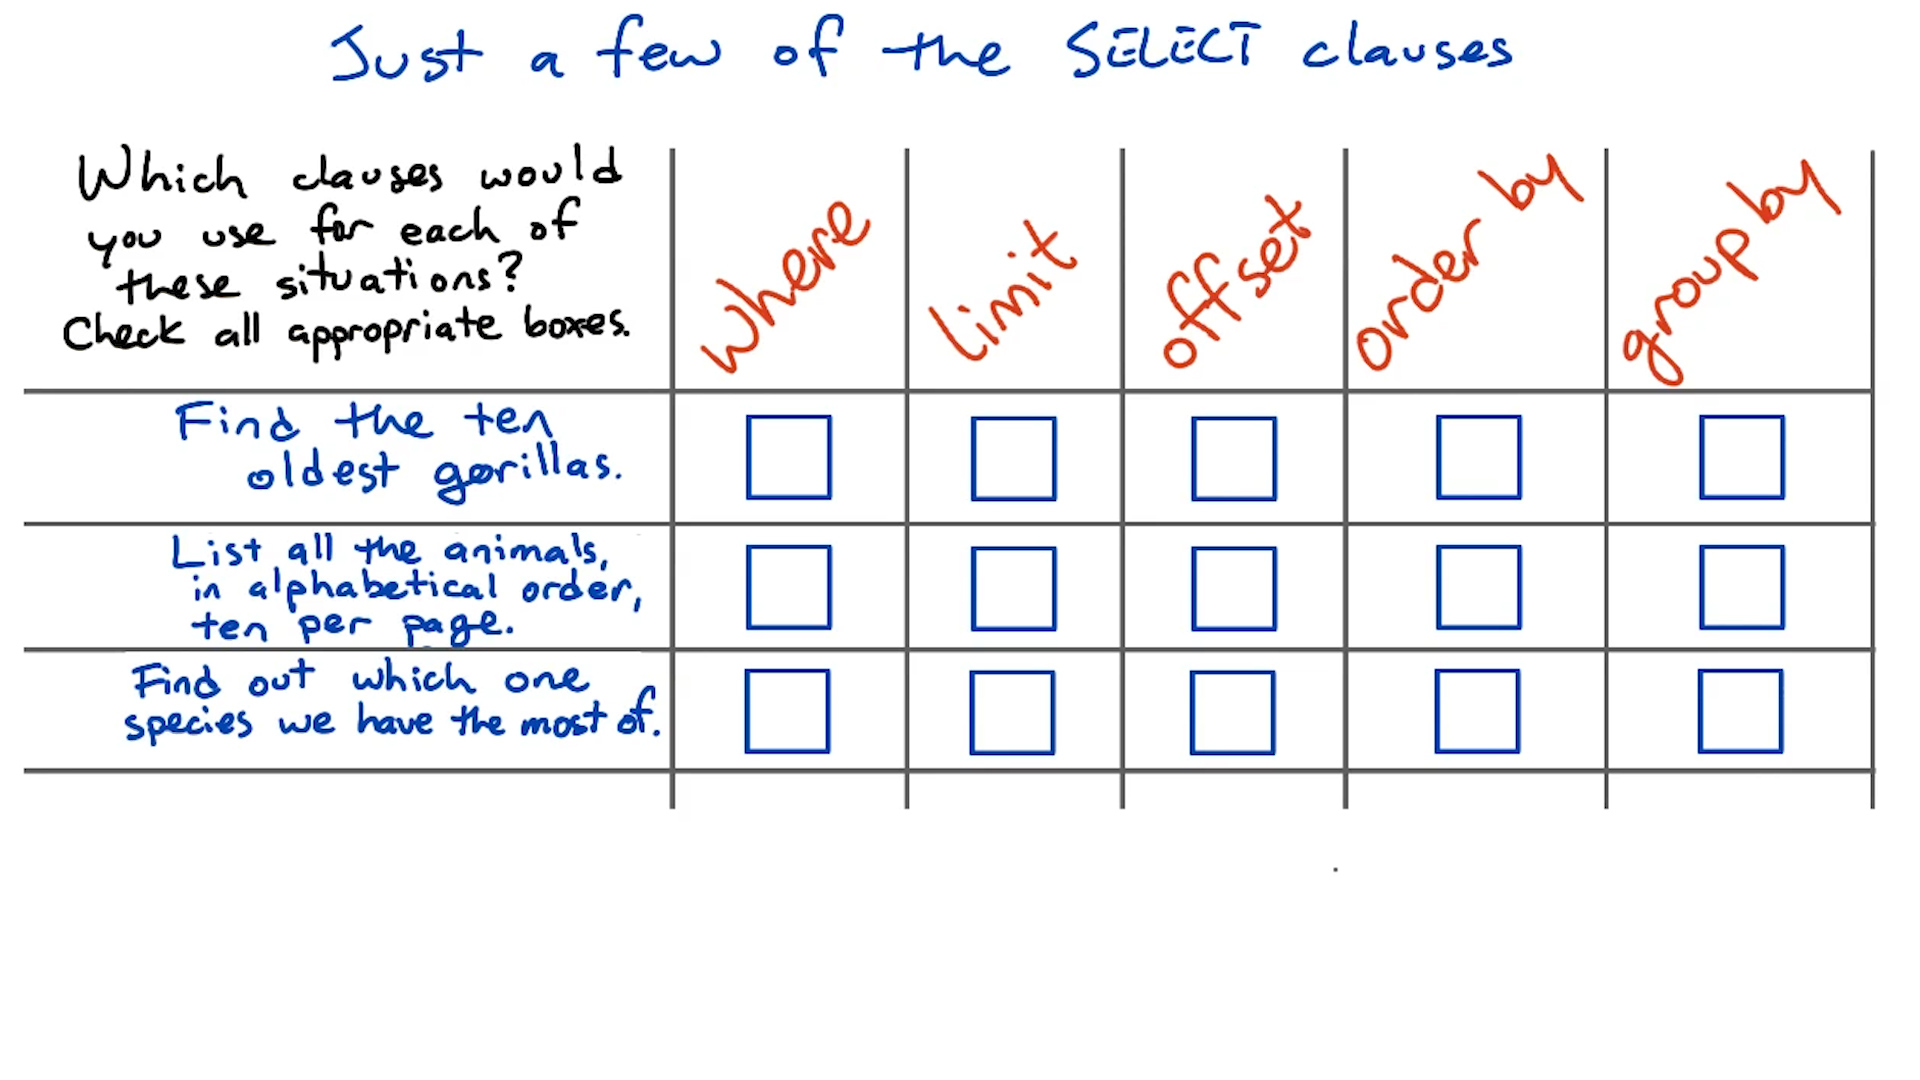 Just a few of the SELECT clauses
Which clauses would
you use for each of
these situations?
Check all appropriate boxes.
where
limit
offset
order by
group by
Find the ten
oldest gorillas.
List all the animals,
in alphabetical order,
ten per page.
Find out which one
species we have the most of.